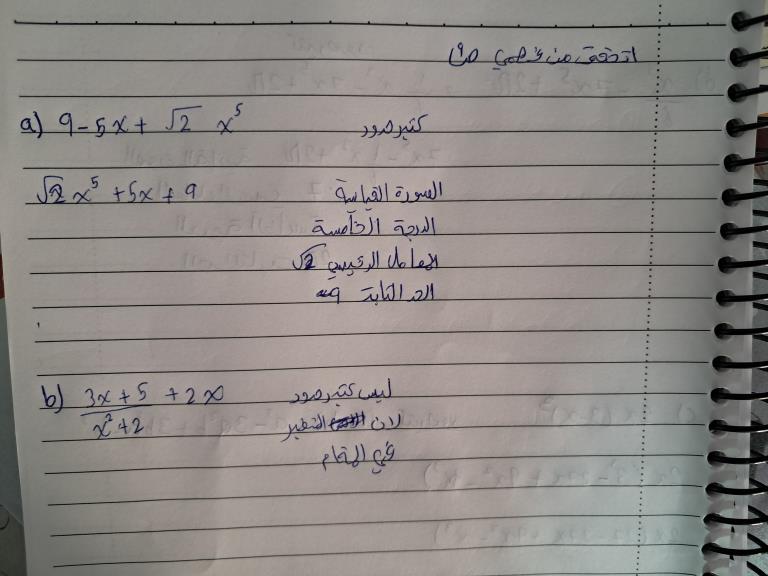 اتحقق من فهمي ص9
a) 9 - 5x + √2 x⁵ كثير حدود
√2 x⁵ + 5x + 9 الصورة القياسية
الدرجة الخامسة
المعامل الرئيسي √2
الحد الثابت 9
b) (3x + 5)/(x² + 2) + 2x ليس كثير حدود
لان المتغير
في المقام